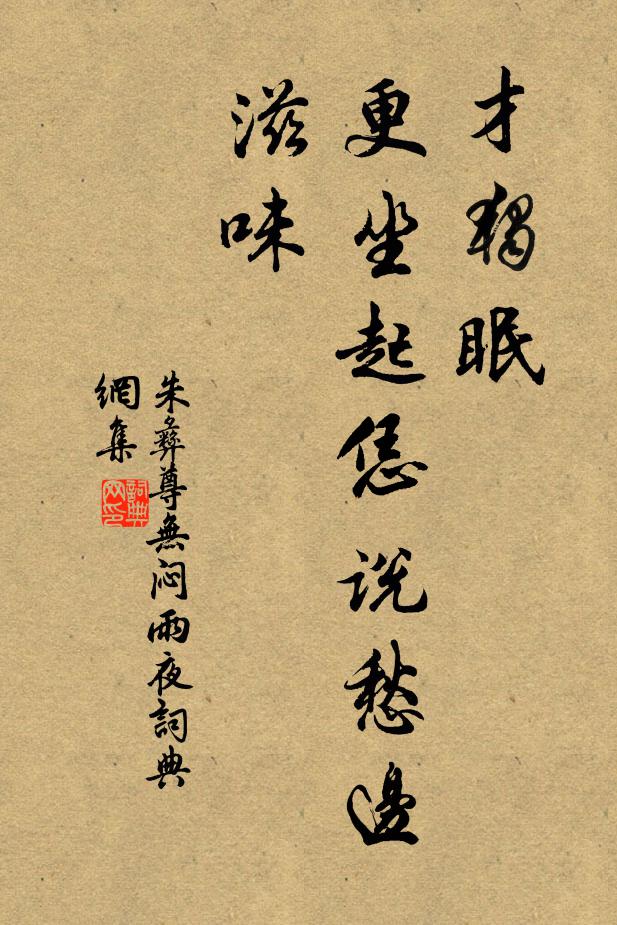 才獨眠
更坐起恁說愁邊
滋味
朱彝尊無闷雨夜詞典
網集
詞典
网印